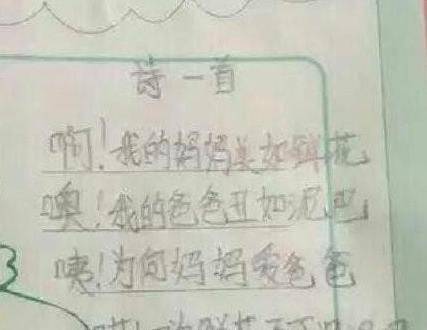 诗一首
啊！我的妈妈美如鲜花
噢！我的爸爸丑如泥巴
咦！为何妈妈爱爸爸